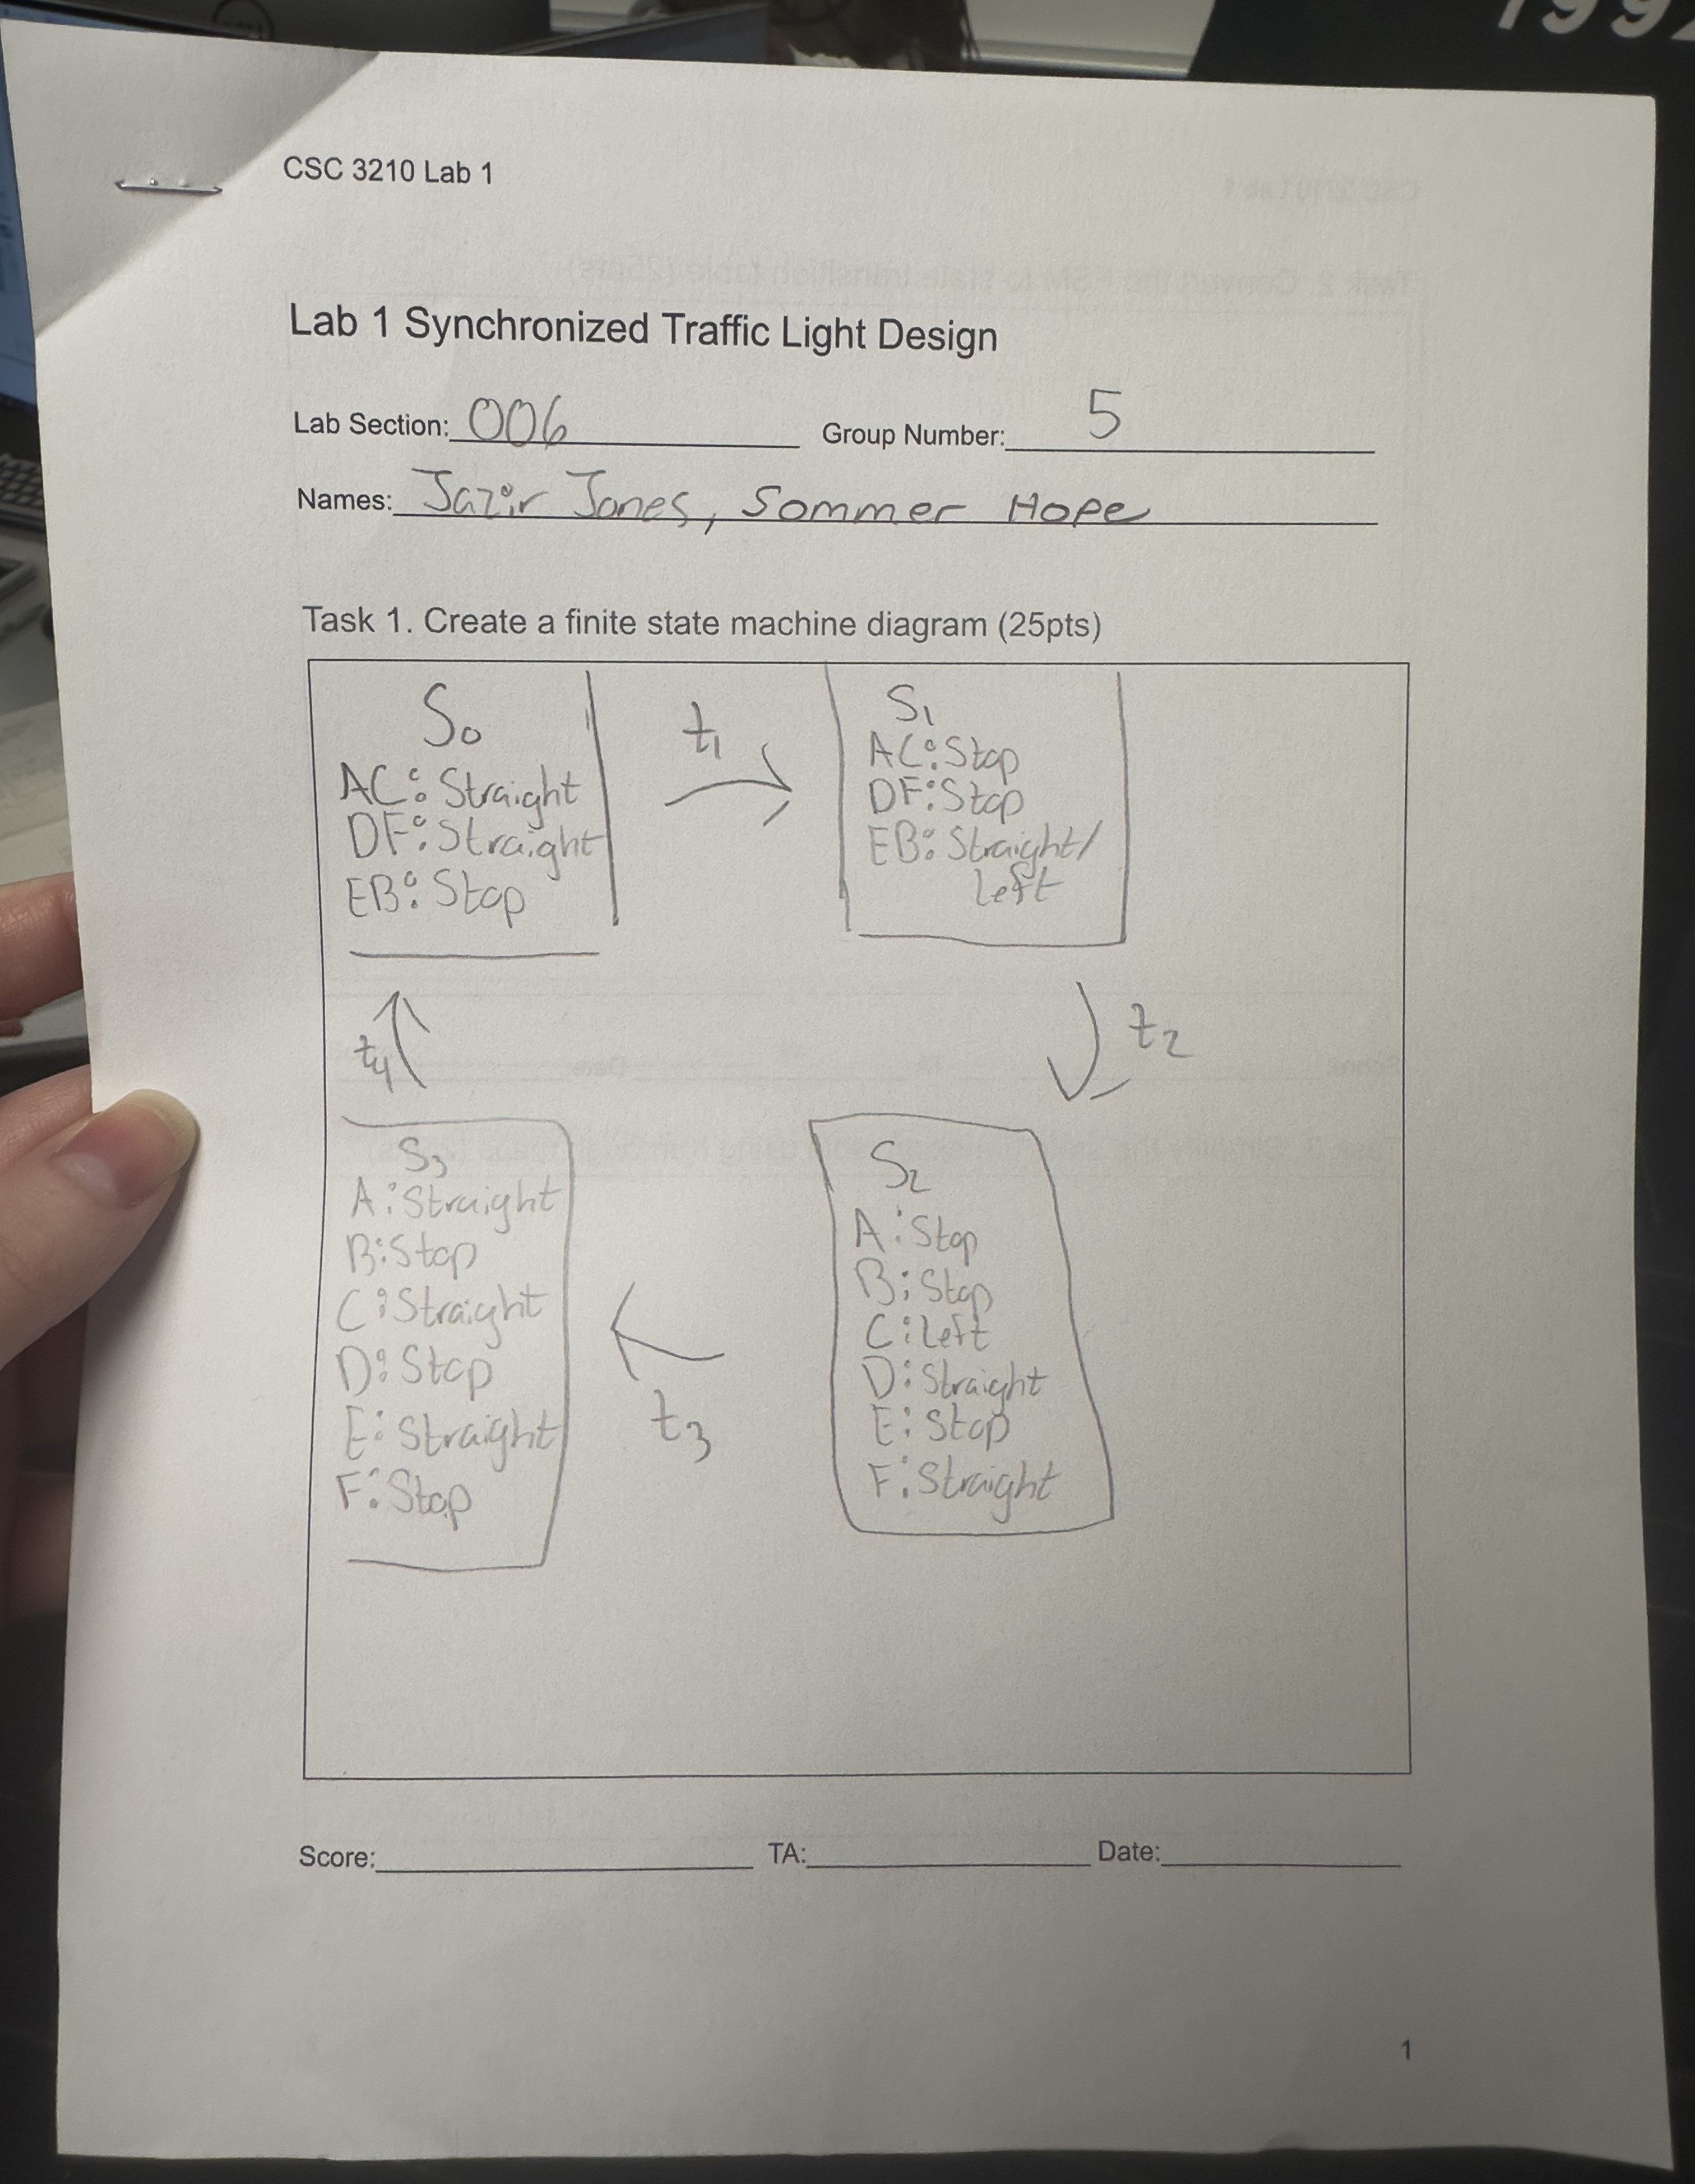 1992
CSC 3210 Lab 1
Lab 1 Synchronized Traffic Light Design
Lab Section: 006 Group Number: 5
Names: Jazir Jones, Sommer Hope
Task 1. Create a finite state machine diagram (25pts)
S0
AC: Straight
DF: Straight
EB: Stop
t1
S1
AC: Stop
DF: Stop
EB: Straight/
left
t4
t2
S3
A: Straight
B: Stop
C: Straight
D: Stop
E: Straight
F: Stop
t3
S2
A: Stop
B: Stop
C: Left
D: Straight
E: Stop
F: Straight
Score: TA: Date:
1